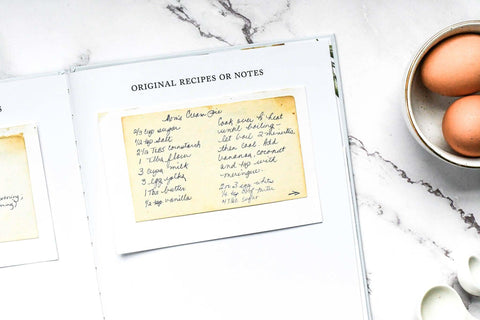 ORIGINAL RECIPES OR NOTES
Cream Pie
cup sugar
tsp salt
2½ Tbs cornstarch
1 Tbs flour
3 cups milk
3 egg yolks
1 Tbs butter
tsp vanilla
Cook over to heat
until boiling -
let boil 2 minutes
then cool Add
bananas, coconut
and top with
meringue.
3 egg whites
tsp
sugar